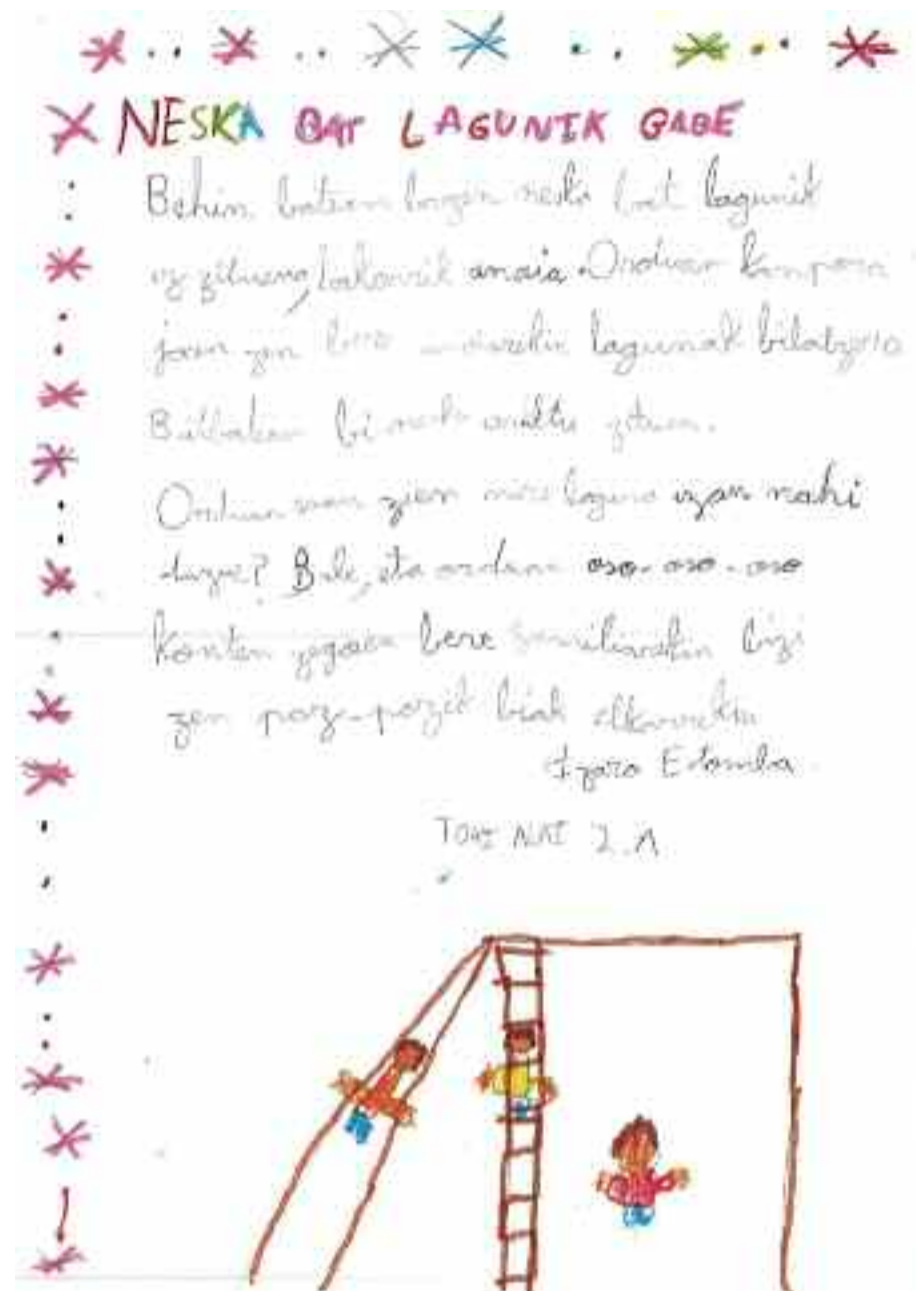 NESKA BAT LAGUNIK GABE
Behin batean bazen neska bat lagunik
ez zituena, bakarrik anaia. Orduan kanpora
joan zen bere anaiarekin lagunak bilatzera
Bilbaban bi neska aurkitu zituen.
Orduan esan zien nire laguna izan nahi
duzue? Bale, eta orduan oso-oso-oso
konten zegoen bere familiarekin bizi
zen poz-pozik biak elkarrekin
Izaro
2.A